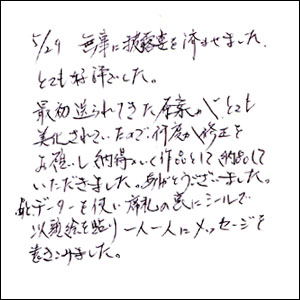 5/29 無事に披露宴を済ませました。
とても好評でした。
最初送られてきた原案が、とても
美化されていたので何度か修正を
お願いし納得いく作品として納品して
いただきました。ありがとうございました。
データーを使い席札の裏にシールで
似顔絵を貼り一人一人にメッセージを
書きこみました。